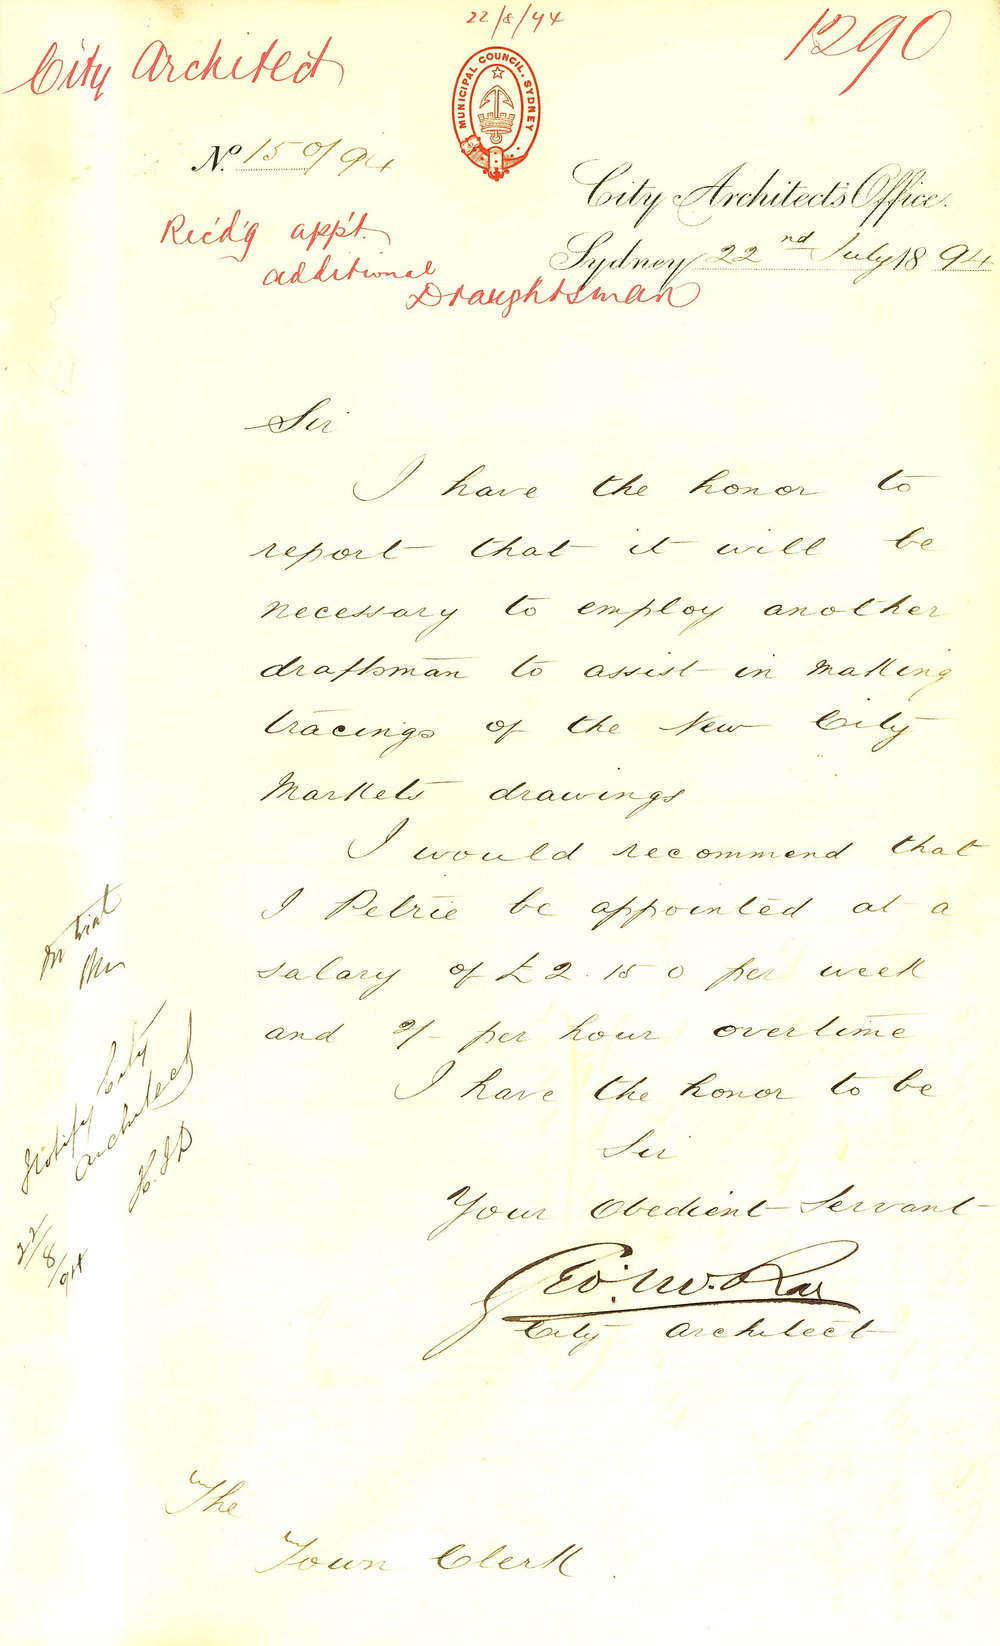 22/8/94
City Architect
1290
MUNICIPAL COUNCIL. SYDNEY
No. 150/94
City Architect's Office.
Rec'd'g app't.
Sydney 22nd July 1894
additional
Draughtsman
Sir
I have the honor to
report that it will be
necessary to employ another
draftsman to assist in making
tracings of the New City
Markets drawings
I would recommend that
J Petrie be appointed at a
salary of £2.15.0 per week
and 2/- per hour overtime
I have the honor to be
Sir
Your Obedient Servant
Geo. McRae
City Architect
On trial
Notify City
Architect
22/8/94
The
Town Clerk